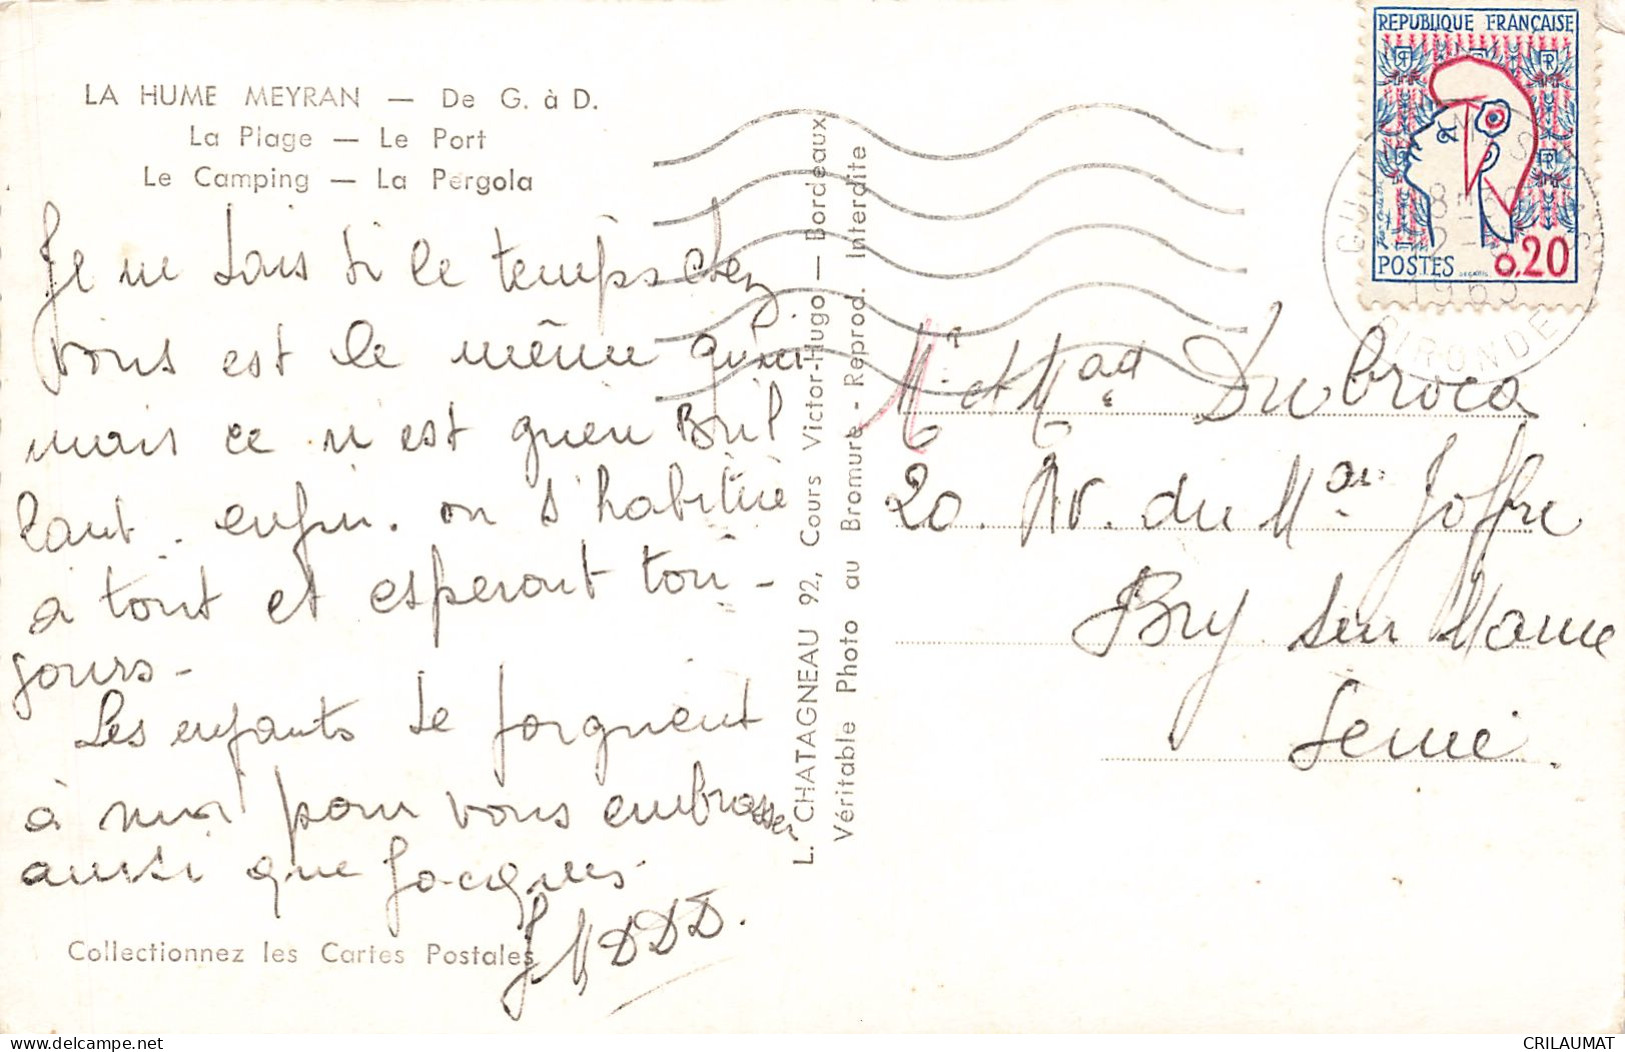 LA HUME MEYRAN — De G. à D.
La Plage — Le Port
Le Camping — La Pergola
Je ne sais si le temps chez
vous est le même qu'ici
mais ce n'est guère Bril
lant. enfin. on s'habitue
à tout et esperont tou-
jours-
Les enfants se joignent
à moi pour vous embrasser
ainsi que Jacques.
Collectionnez les Cartes Postales
L. CHATAGNEAU 92, Cours Victor-Hugo — Bordeaux
Véritable Photo au Bromure - Reprod. Interdite
REPUBLIQUE FRANÇAISE
POSTES
0,20
GIRONDE
Mr et Mad Dubroca
20. Av. du Mal Joffre
Bry sur Marne
Seine.
CRILAUMAT